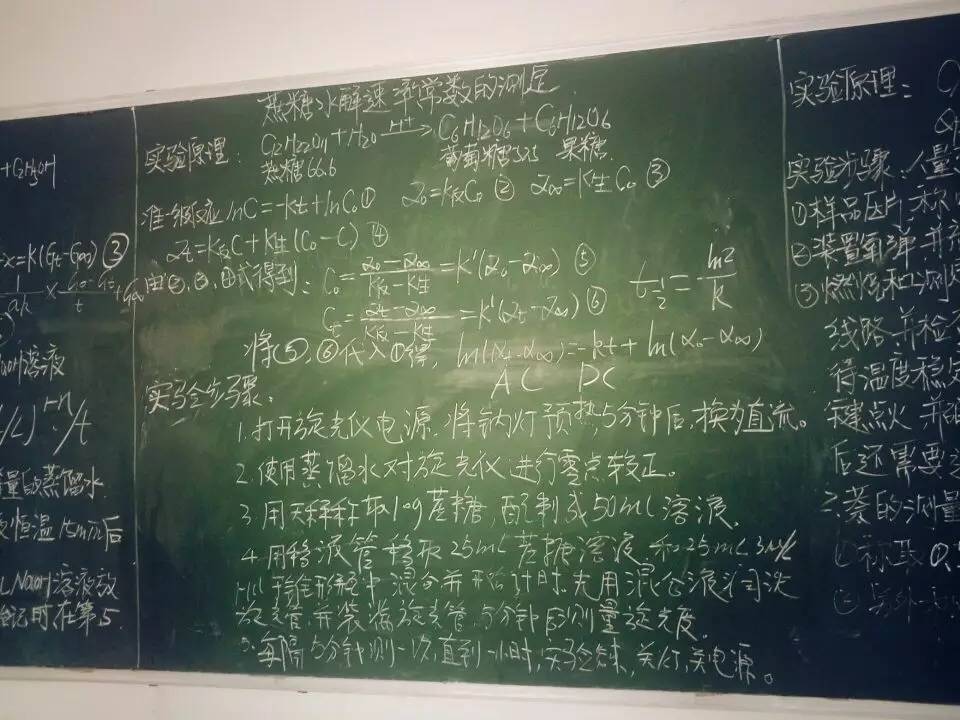 +C2H5OH
-x=K(Gt-G∞) ③
溶液
量的蒸馏水
恒温15min后
NaOH溶液放
记时在第5
蔗糖水解速率常数的测定
实验原理: C12H22O11+H2O H+→ C6H12O6+C6H12O6
蔗糖66.6 葡萄糖52.5 果糖
准一级反应 lnC=-kt+lnC0 ① α0=K反C0 ② α∞=K生C0 ③
αt=K反C+K生(C0-C) ④
由②,③,④式得到: C0=α0-α∞/K反-K生=K'(α0-α∞) ⑤ t1/2=ln2/k
Ct=αt-α∞/K反-K生=K'(αt-α∞) ⑥
将⑤,⑥代入①得, ln(αt-α∞)=-kt+ln(α0-α∞)
AC DC
实验步骤:
1.打开旋光仪电源,将钠灯预热5分钟后,换为直流。
2.使用蒸馏水对旋光仪进行零点较正。
3.用天秤称取10g蔗糖,配制成50mL溶液。
4.用移液管移取25mL蔗糖溶液和25mL 3M
HCl 锥形瓶中混合并开始计时,先用混合液润洗
旋光管,并装满旋光管,5分钟后测量旋光度。
5.每隔5分钟测一次,直到一小时,实验结束,关灯,关电源。
实验原理:
实验步骤:
①样品压片:称
②装置氧弹,并
③燃烧和测
线路并检
待温度稳定
点火,并
后还需要
的测量
①称取0.
② 另外